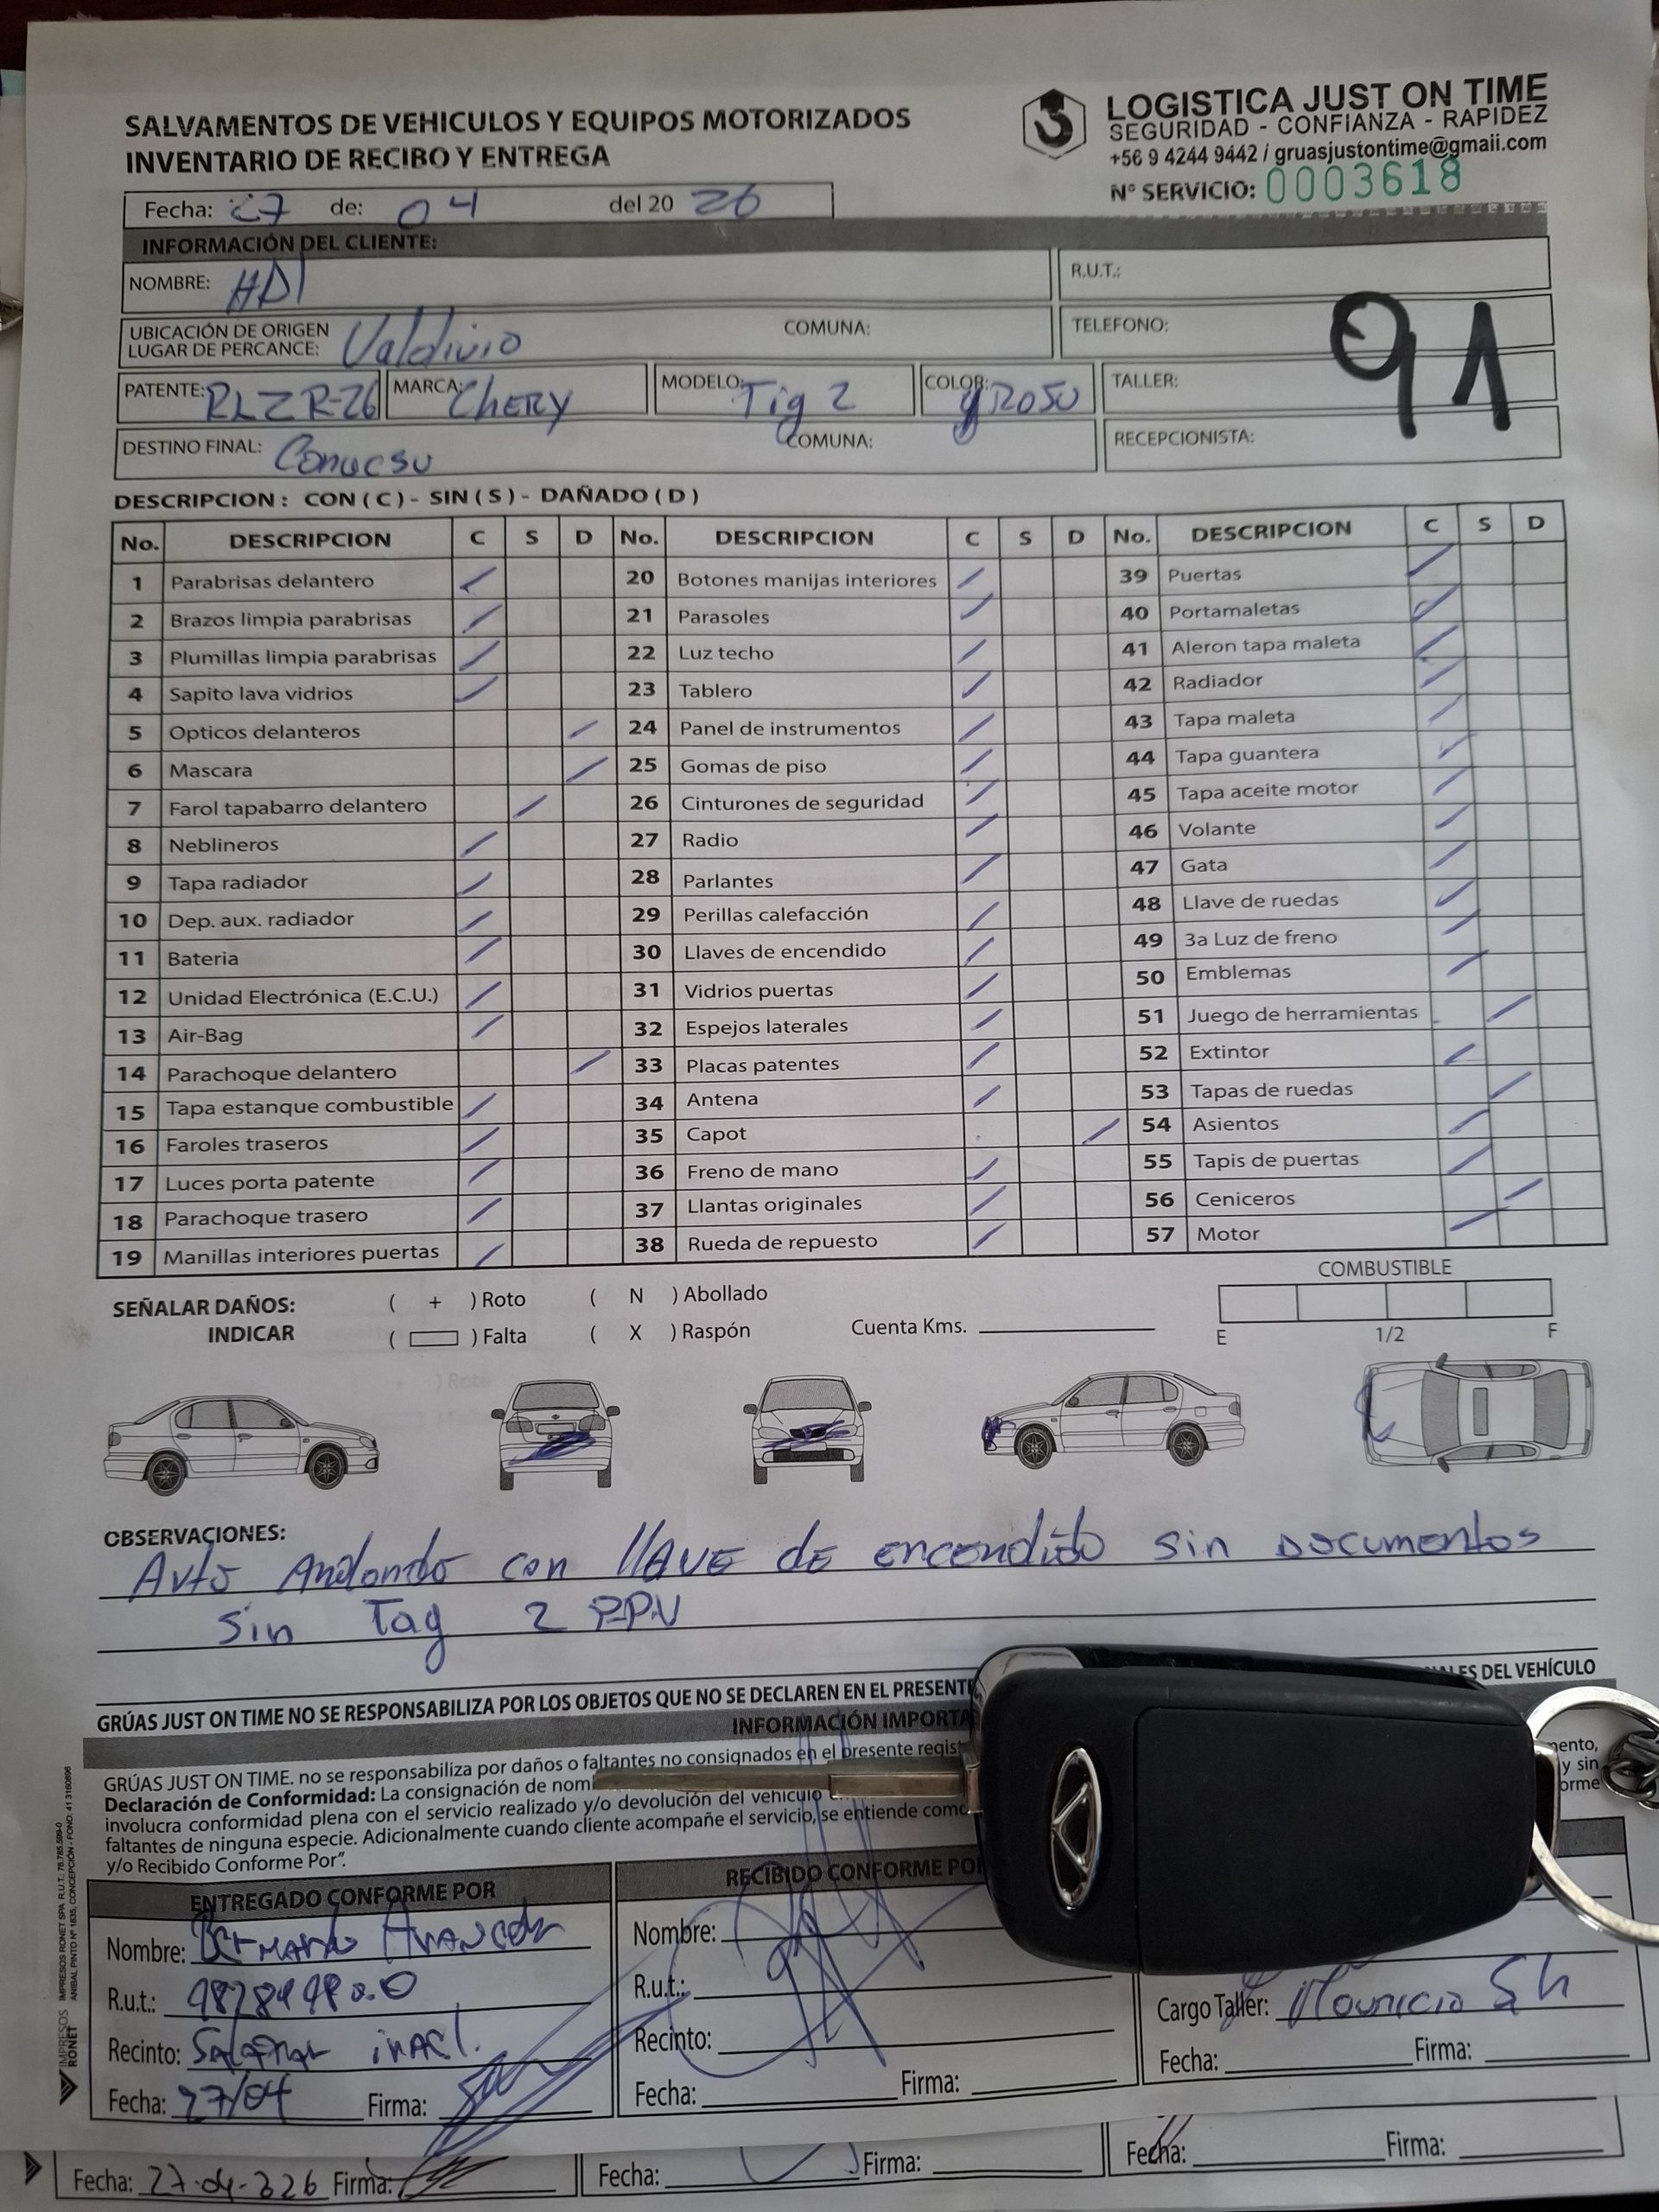 SALVAMENTOS DE VEHICULOS Y EQUIPOS MOTORIZADOS
INVENTARIO DE RECIBO Y ENTREGA
LOGISTICA JUST ON TIME
SEGURIDAD - CONFIANZA - RAPIDEZ
+56 9 4244 9442 / gruasjustontime@gmaii.com
N° SERVICIO: 0003618
Fecha: 27 de: 04 del 20 26
INFORMACIÓN DEL CLIENTE:
NOMBRE: HDI R.U.T.:
UBICACIÓN DE ORIGEN
LUGAR DE PERCANCE: Valdivio COMUNA: TELEFONO:
91
PATENTE: RLZR-26 MARCA: CHERY MODELO: Tig 2 COLOR: TALLER:
DESTINO FINAL: COMUNA: RECEPCIONISTA:
DESCRIPCION : CON ( C ) - SIN ( S ) - DAÑADO ( D )
No. DESCRIPCION C S D No. DESCRIPCION C S D No. DESCRIPCION C S D
1 Parabrisas delantero 20 Botones manijas interiores 39 Puertas
2 Brazos limpia parabrisas 21 Parasoles 40 Portamaletas
3 Plumillas limpia parabrisas 22 Luz techo 41 Aleron tapa maleta
4 Sapito lava vidrios 23 Tablero 42 Radiador
5 Opticos delanteros 24 Panel de instrumentos 43 Tapa maleta
6 Mascara 25 Gomas de piso 44 Tapa guantera
7 Farol tapabarro delantero 26 Cinturones de seguridad 45 Tapa aceite motor
8 Neblineros 27 Radio 46 Volante
9 Tapa radiador 28 Parlantes 47 Gata
10 Dep. aux. radiador 29 Perillas calefacción 48 Llave de ruedas
11 Bateria 30 Llaves de encendido 49 3a Luz de freno
12 Unidad Electrónica (E.C.U.) 31 Vidrios puertas 50 Emblemas
13 Air-Bag 32 Espejos laterales 51 Juego de herramientas
14 Parachoque delantero 33 Placas patentes 52 Extintor
15 Tapa estanque combustible 34 Antena 53 Tapas de ruedas
16 Faroles traseros 35 Capot 54 Asientos
17 Luces porta patente 36 Freno de mano 55 Tapis de puertas
18 Parachoque trasero 37 Llantas originales 56 Ceniceros
19 Manillas interiores puertas 38 Rueda de repuesto 57 Motor
SEÑALAR DAÑOS: ( + ) Roto ( N ) Abollado COMBUSTIBLE
INDICAR ( ) Falta ( X ) Raspón Cuenta Kms. E 1/2 F
OBSERVACIONES:
Auto Andando con llAVE de encendido sin Documentos
Sin Tag 2 PPU
GRÚAS JUST ON TIME NO SE RESPONSABILIZA POR LOS OBJETOS QUE NO SE DECLAREN EN EL PRESENT DEL VEHÍCULO
INFORMACIÓN IMPORTA
GRÚAS JUST ON TIME. no se responsabiliza por daños o faltantes no consignados en el presente regis
Declaración de Conformidad: La consignación de nom y sin
involucra conformidad plena con el servicio realizado y/o devolución del vehículo orme
faltantes de ninguna especie. Adicionalmente cuando cliente acompañe el servicio, se entiende como
y/o Recibido Conforme Por".
ENTREGADO CONFORME POR RECIBIDO CONFORME PO
Nombre: Nombre:
R.u.t.: R.u.t.: Cargo Taller: Mauricio
Recinto: Recinto: Fecha: Firma:
Fecha: 27/04 Firma: Fecha: Firma:
IMPRESOS RONET
IMPRESOS RONET SPA R.U.T.: 76.785.599-0
ANIBAL PINTO N° 1835, CONCEPCIÓN - FONO: 41 3160896
Fecha: Firma:
Fecha: 27-04- Firma: Fecha: Firma: